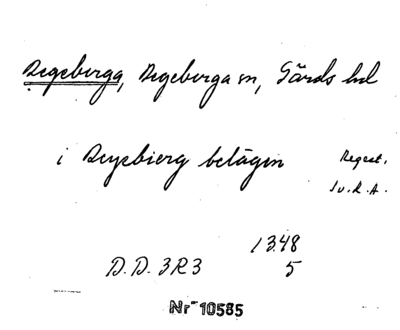 Degeberga, Degeberga sn, Gärds hd
i Deyebierg belägen Regest.
Sv. R. A.
1348
D. D. 3R3 5
Nr 10585